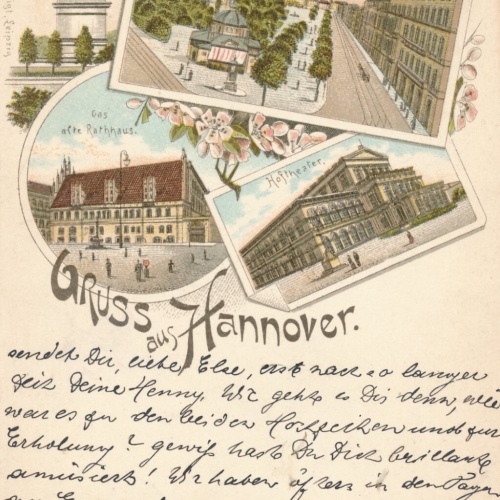 Das
alte Rathhaus.
Hoftheater.
Gruss
aus Hannover.
sendet Dir, liebe Else, erst nach so langer
Zeit Deine Henny. Wie geht es Dir denn,
war es zu den beiden Hochzeiten und zur
Erholung? gewiß hast Du Dich brillante
amüsiert! Wir haben öfters in den Tagen